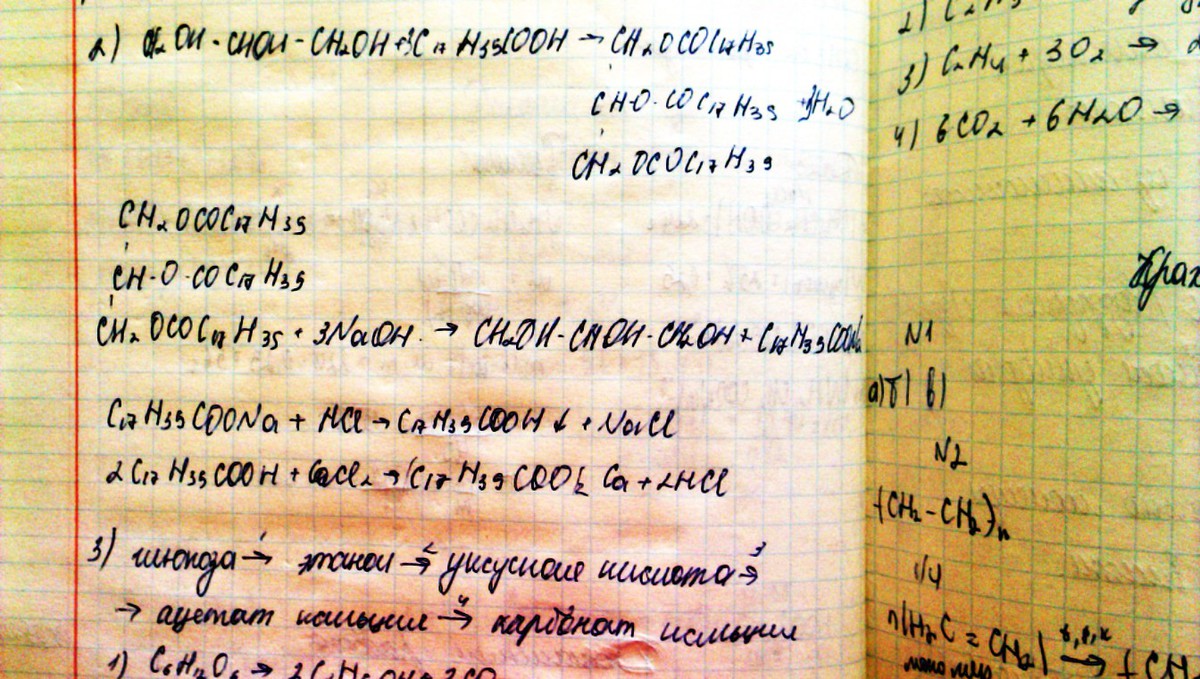 2) CH2OH - CHOH - CH2OH + 3C17H35COOH → CH2OCOC17H35
CH-O-COC17H35 + 3H2O
CH2OCOC17H35
CH2OCOC17H35
CH-O-COC17H35
CH2OCOC17H35 + 3NaOH → CH2OH-CHOH-CH2OH + C17H35COONa
C17H35COONa + HCl → C17H35COOH ↓ + NaCl
2C17H35COOH + CaCl2 → (C17H35COO)2 Ca + 2HCl
3) глюкоза →1 этанол →2 уксусная кислота →3
→ ацетат кальция →4 карбонат кальция
1) C6H12O6 →
3) C2H4 + 3O2 →
4) 6CO2 + 6H2O →
N1
а) б) в)
N2
(CH2-CH2)n
n(H2C = CH2) →
мономер